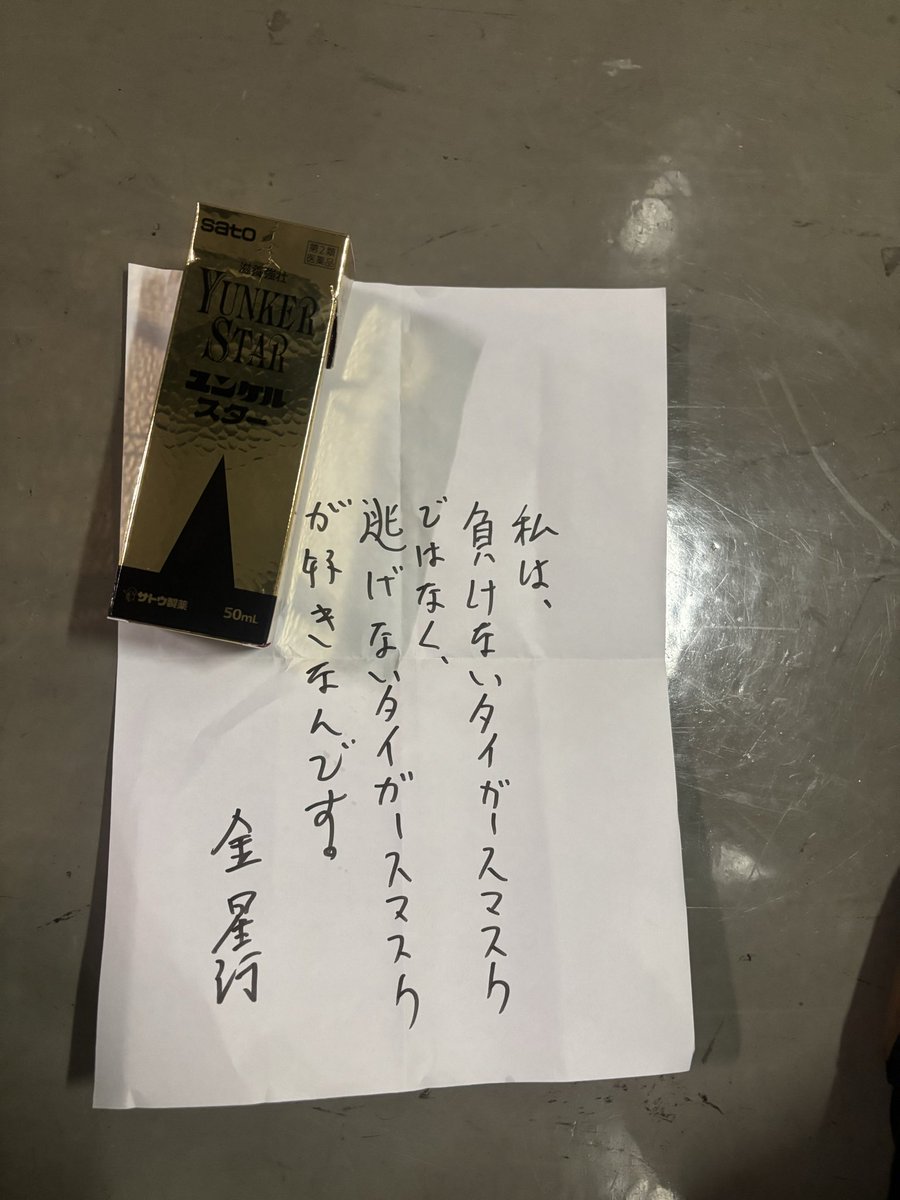 sato
第2類
医薬品
滋養強壮
YUNKER
STAR
ユンケル
スター
サトウ製薬
50mL
私は、
負けないタイガースマスク
ではなく、
逃げないタイガースマスク
が好きなんです。
金星行